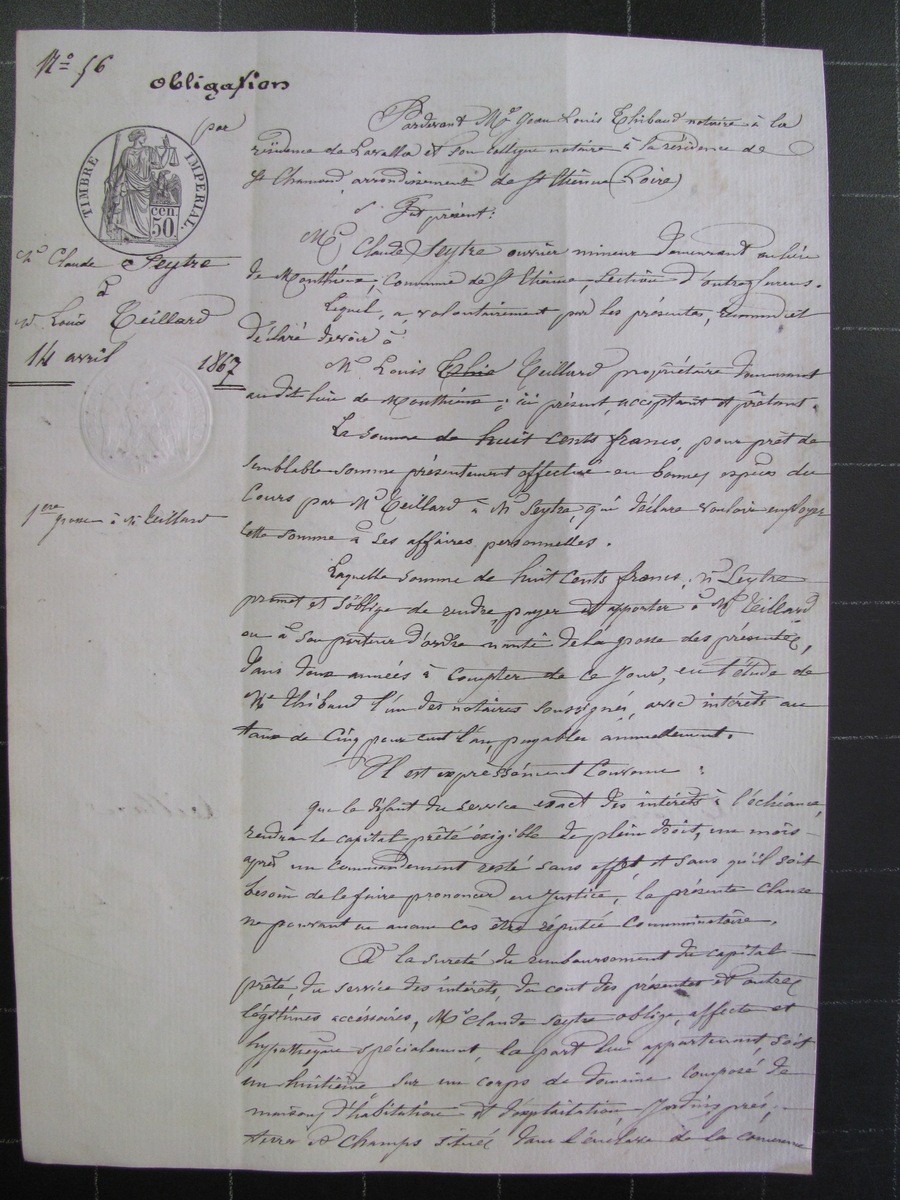 No 56
Obligation
par
TIMBRE IMPERIAL
50 cen.
Mr Claude Seytre
à
Mr Louis Teillard
14 avril 1867
1ere grosse à Mr Teillard
Pardevant Me Jean Louis Thibaud notaire à la
résidence de Lavalla et son collègue notaire à la résidence de
St Chamond, arrondissement de St Etienne (Loire)
Est présent:
Mr Claude Seytre ouvrier mineur demeurant au lieu
de Monthieux, Commune de St Etienne, Section d'outrefurens.
Lequel, a volontairement par les présentes, reconnu et
déclaré devoir à
Mr Louis Teillard propriétaire demeurant
audit lieu de Monthieux, ici présent, acceptant et prêtant.
La somme de huit cents francs, pour prêt de
semblable somme présentement effectué en bonnes espèces du
Cours par Mr Teillard à Mr Seytre, qui déclare vouloir employer
cette somme à ses affaires personnelles.
Laquelle somme de huit cents francs, Mr Seytre
promet et s'oblige de rendre, payer et apporter à Mr Teillard
ou à son porteur d'ordre nanti de la grosse des présentes,
dans deux années à compter de ce jour, en l'étude de
Me Thibaud l'un des notaires soussignés, avec intérêts au
taux de Cinq pour cent l'an, payables annuellement.
Il est expressément Convenu:
que le défaut du service exact des intérêts à l'échéance,
rendra le capital prêté éxigible de plein droit, un mois
après un Commandement resté sans effet et sans qu'il soit
besoin de le faire prononcer en Justice, la présente clause
ne pouvant en aucun cas être réputée Comminatoire.
A la sureté du remboursement du capital
prêté, du service des intérêts, du cout des présentes et autres
légitimes accéssoires, Mr Claude Seytre oblige, affecte et
hypothèque spécialement, la part lui appartenant, soit
un huitième sur un corps de domaine Composé de
maisons d'habitation et d'exploitation, Jardins, prés,
terres et champs situés dans l'enclave de la commune